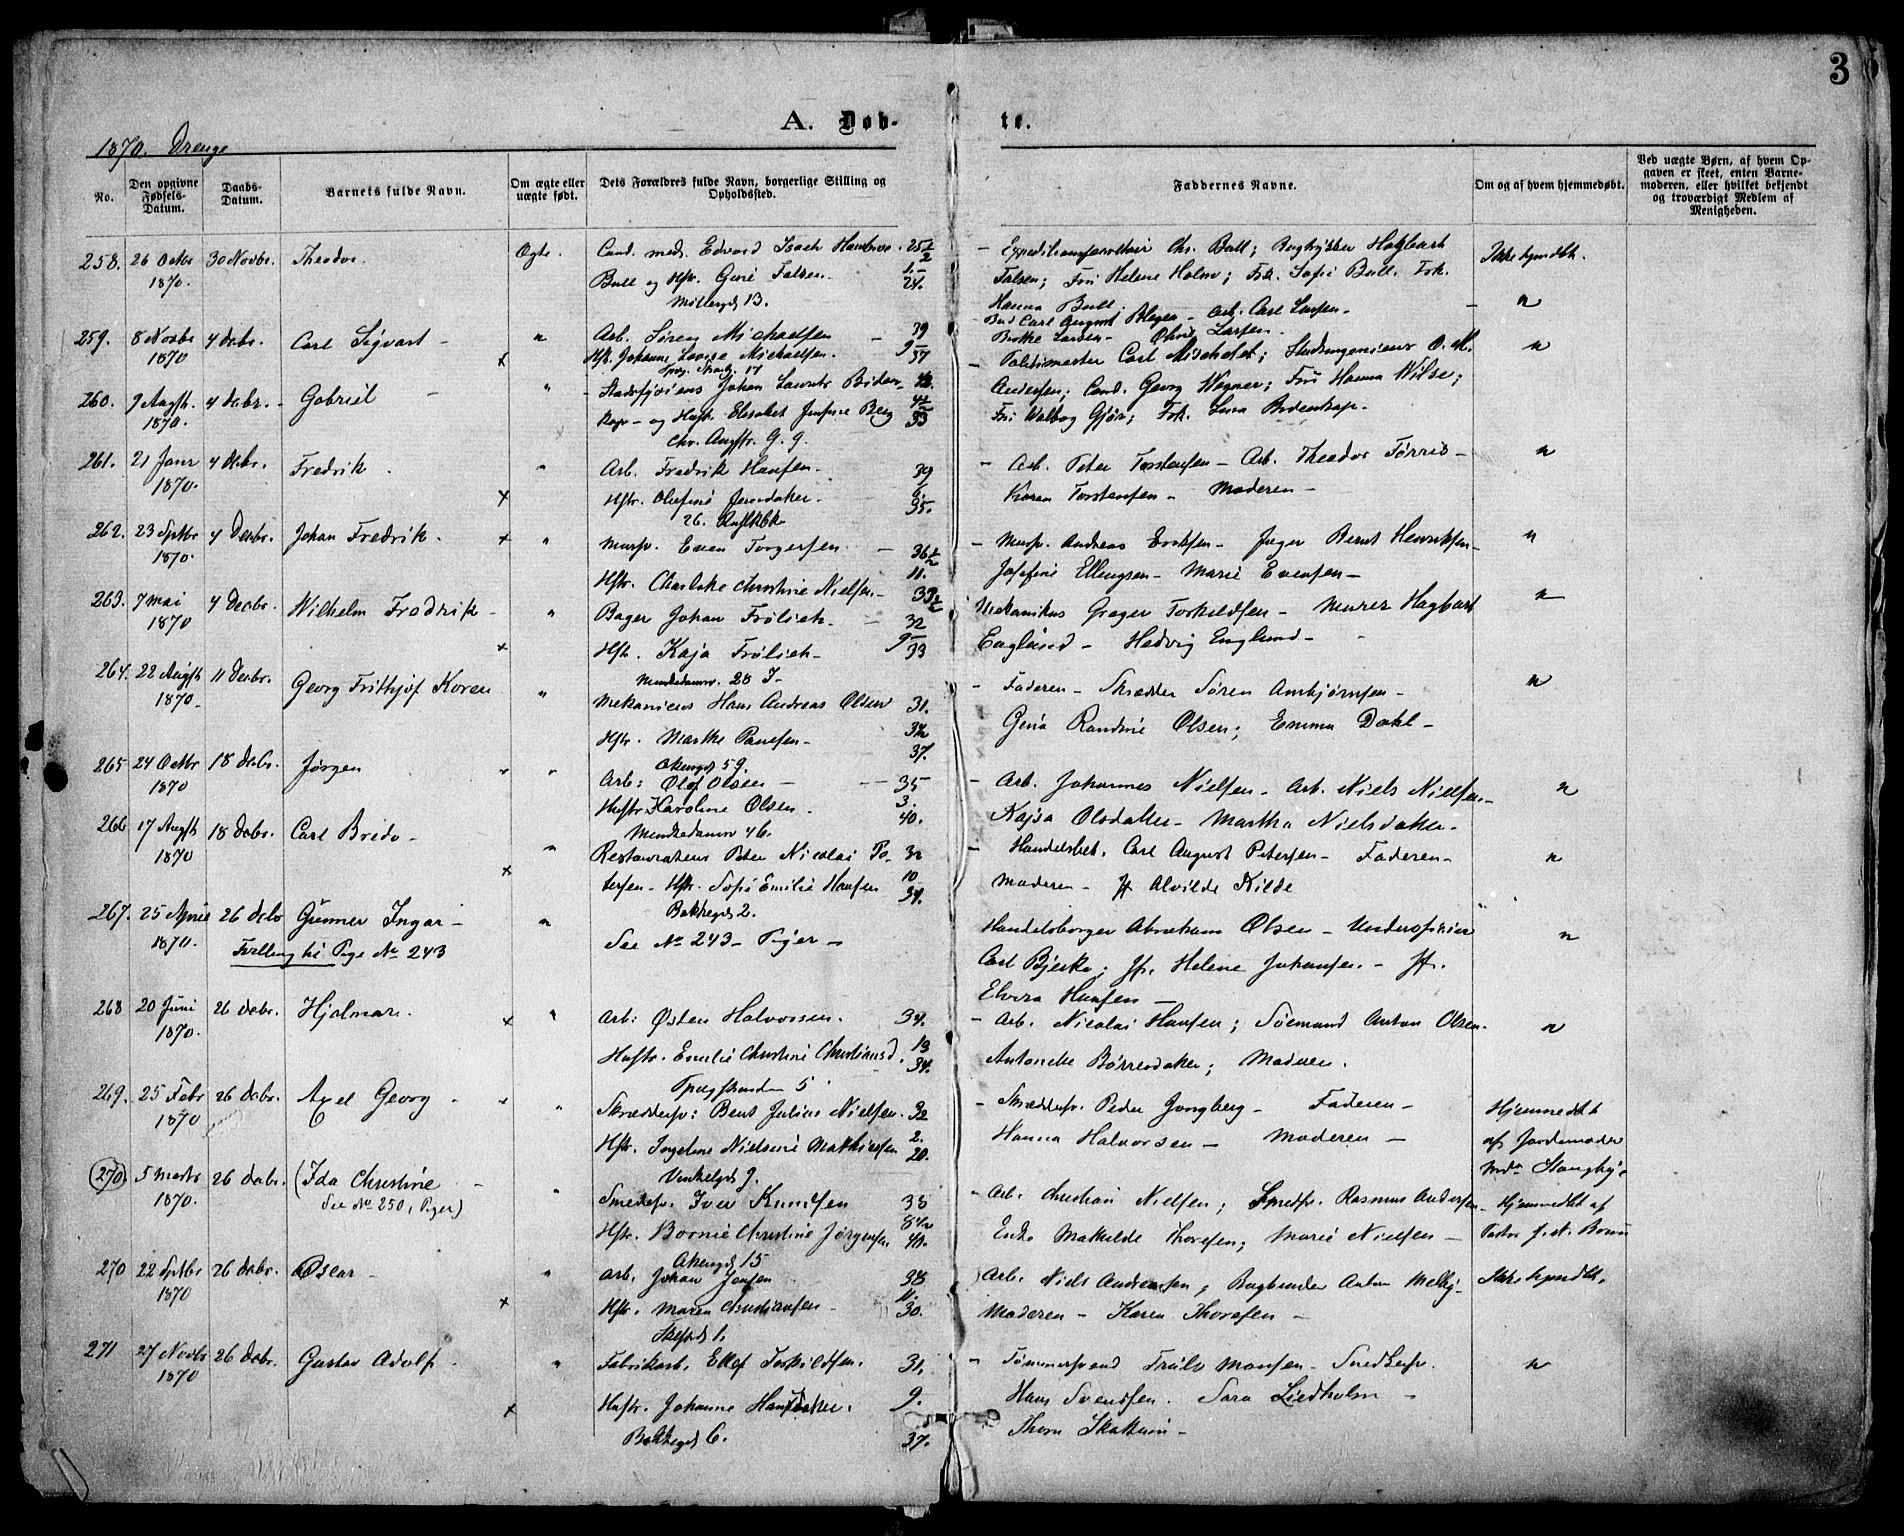 3
A. Døb-
te.
1870. Drenge
No.
Den opgivne Fødsels-Datum.
Daabs-Datum.
Barnets fulde Navn.
Om ægte eller uægte født.
Dets Forældres fulde Navn, borgerlige Stilling og Opholdssted.
Faddernes Navne.
Om og af hvem hjemmedøbt.
Ved uægte Børn, af hvem Opgaven er skeet, enten Barnemoderen, eller hvilket bekjendt og troværdigt Medlem af Menigheden.
258. 26 Octbr 30 Novbr. Theodor Ægte. Cand. med. Edvard Isach Hambro
1870. Bull og Hfr. Gine Falsen.
Møllergd. 13.
Bull; Bogtrykker Hagbart
Falsen; Frk Helene Holm; Frk. Sofie Bull. Frk. Ikke hjmdbt.
Hanna Bull
259. 8 Novbr 4 Decbr. Carl Sigvart " Arb. Søren Michaelsen 39
1870 Hfr. Johanne Lovise Michaelsen. 37
Carl August - Arb. Carl Larsen -
Larsen - Larsen - "
260. 9 Augst. 4 Decbr. Gabriel " Johan Lauritz Boden-
1870. kap - og Hustr. Elisabet Berg 33
Chr. Augstr. G. 9.
Politimester Carl Michelet;
Andersen; Cand. Georg Wegner; Frk Hanna Wilse; "
Frk Walborg Gjør; Frk. Lina Bodenkap.
261. 21 Janr 4 Decbr. Fredrik " Arb. Fredrik Hansen 39
1870. Hfr. Olefine 35.
26.
Arb. Peter Torstensen - Arb. Theodor "
Karen Torstensen - Moderen -
262. 23 Sptbr 4 Decbr. Johan Fredrik. " Mursv. Even Torgersen. 36½
1870 11.
Hfr. Charlotte Christine Nielsen - 39½
Mursv. Andreas Eriksen - Jæger Bernt Henriksen - "
Josefine Ellingsen - Marie Evensen -
263. 7 Mai 4 Decbr. Wilhelm Fredrik - " Bager Johan Frölich - 32
1870 9
Hfr. Kaja Frölich - 33
Munkedamsv. 28 I -
Mekanikus Greger Torkildsen - Murer Hagbart "
Englund - Hedvig Englund -
264. 22 Augst 11 Decbr. Georg Frithjof Koren " Mekanicus Hans Andreas Olsen 31.
1870 3½
Hfr. Marthe Paulsen - 37.
Akersgd 59.
Faderen - Skrædder Søren Arnbjørnsen - "
Gina Randine Olsen; Emma Dahl -
265 24 Octbr 18 Decbr. Jørgen " Arb: Olof Olsen - 35
1870 Hustr. Karoline Olsen. 3. 40.
Munkedamsv 46.
Arb. Johannes Nielsen - Arb. Niels Nielsen - "
Kajsa Olsdatter - Martha Nielsdatter -
266 17 Augst 18 Decbr. Carl Bredo - " Restauratens Peter Nicolai Pe- 32
1870 tersen - Hfr. Sofie Emilie Hansen 10 34.
Bakkegd 2.
Handelsbet. Carl August Petersen - Faderen - "
Moderen - Jf Alvilde Kilde
267. 25 April 26 Decbr Gunner Ingar - " See No 243 - Piger -
1870. Tvilling til Pige No 243
Handelsborger Abraham Olsen - Underofficier "
Carl Bjerke; Jf. Helene Johansen - Jf.
Elvira Hansen -
268 20 Juni 26 Decbr. Hjalmar. " Arb: Østen Halvorsen. 34.
1870. 13
Hustr. Emilie Christine Christiansd. 34.
5
Arb. Nicolai Hansen; Sømand Anton Olsen. "
Antonette Børresdatter; Moderen.
269. 25 Febr 26 Decbr. Axel Georg - " Skræddersv: Bent Julius Nielsen. 32
1870 2.
Hfr. Ingeline Nielsine Mathisen 20.
Vinkelgd 7.
Skræddersv. Peder Jongberg - Faderen - Hjemmedbt
Hanna Halvorsen - Moderen - af Jordemoder
Mda Stangby.
(270) 5 Marts 26 Decbr. (Ida Christine - " Smedsv. Iver Knudsen 35
1870. See No 250, Piger) 8½
Hfr. Christine Jørgensen. 41.
Akersgd 15
Arb. Christian Nielsen; Smedsv. Rasmus Andersen - Hjemmedbt af
Enke Mathilde Thoresen; Marie Nielsen -
270 22 Sptbr 26 Decbr. Oscar - " Arb. Johan Jensen 38
1870 11.
Hfr. Maren Christiansen - 30.
1.
Arb. Niels Andreassen; Bogbinder Anton Melby - Ikke hjmdbt.
Moderen - Karen Thoresen -
271 27 Novbr 26 Decbr. Gustav Adolf - " Fabrikarb. Ellef Torkildsen. 31.
1870 9.
Hustr. Johanne Hansdatter. 37.
Bakkegd 6.
Tømmersvend Truls Monsen - Snedkersv. "
Hans Svendsen. Sara Liedholm -
Thora Skattum -